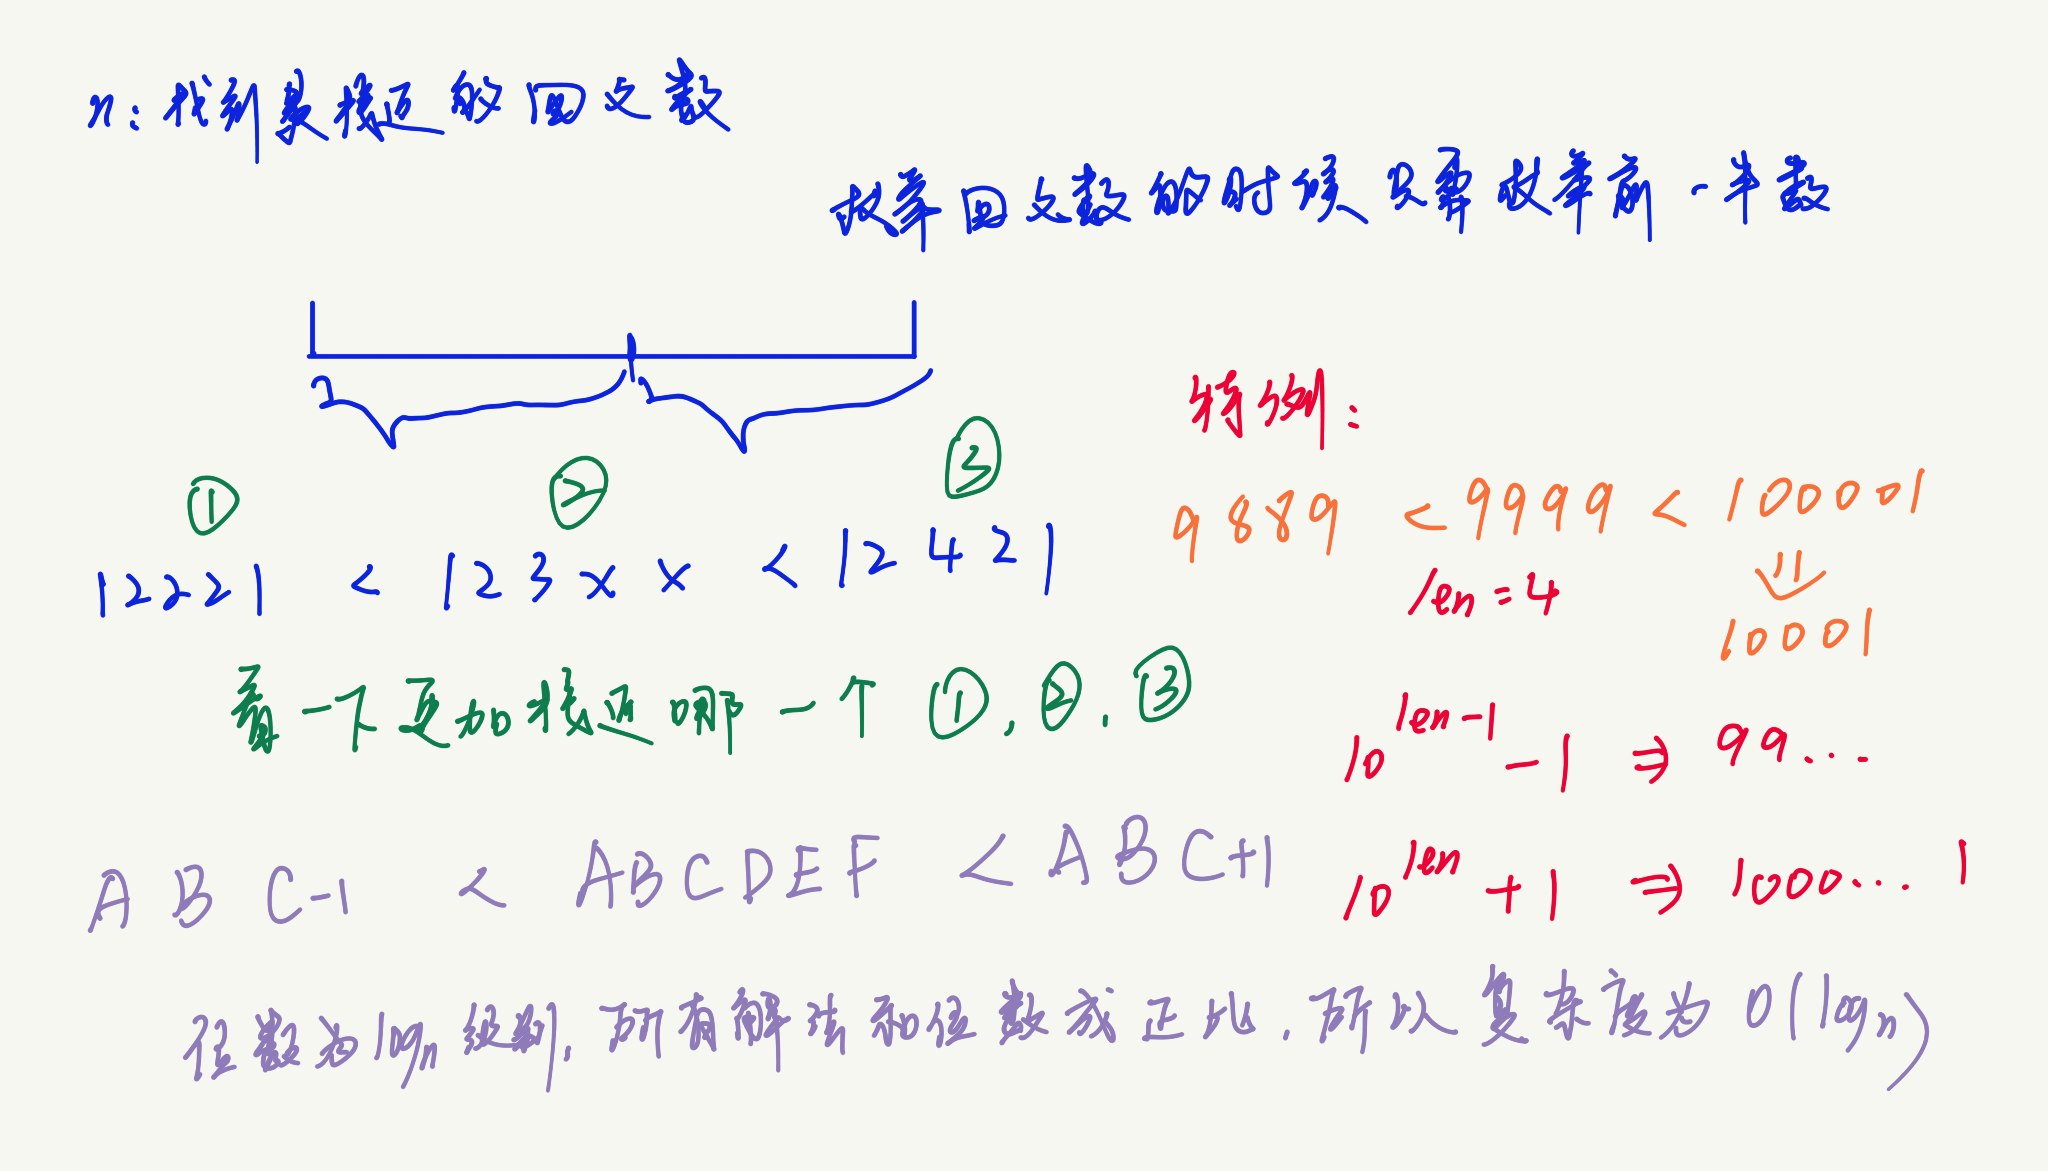 n: 找到最接近的回文数
枚举回文数的时候只要枚举前一半数
① ② ③
12221 < 123xx < 12421
看一下更加接近哪一个 ①, ②, ③
特例:
9889 < 9999 < 100001
len = 4
10001
10^len-1 - 1 ⇒ 99...
10^len + 1 ⇒ 1000... 1
A B C-1 < ABCDEF < A B C+1
位数为 logn 级别, 所有解法和位数成正比, 所以复杂度为 O(logn)